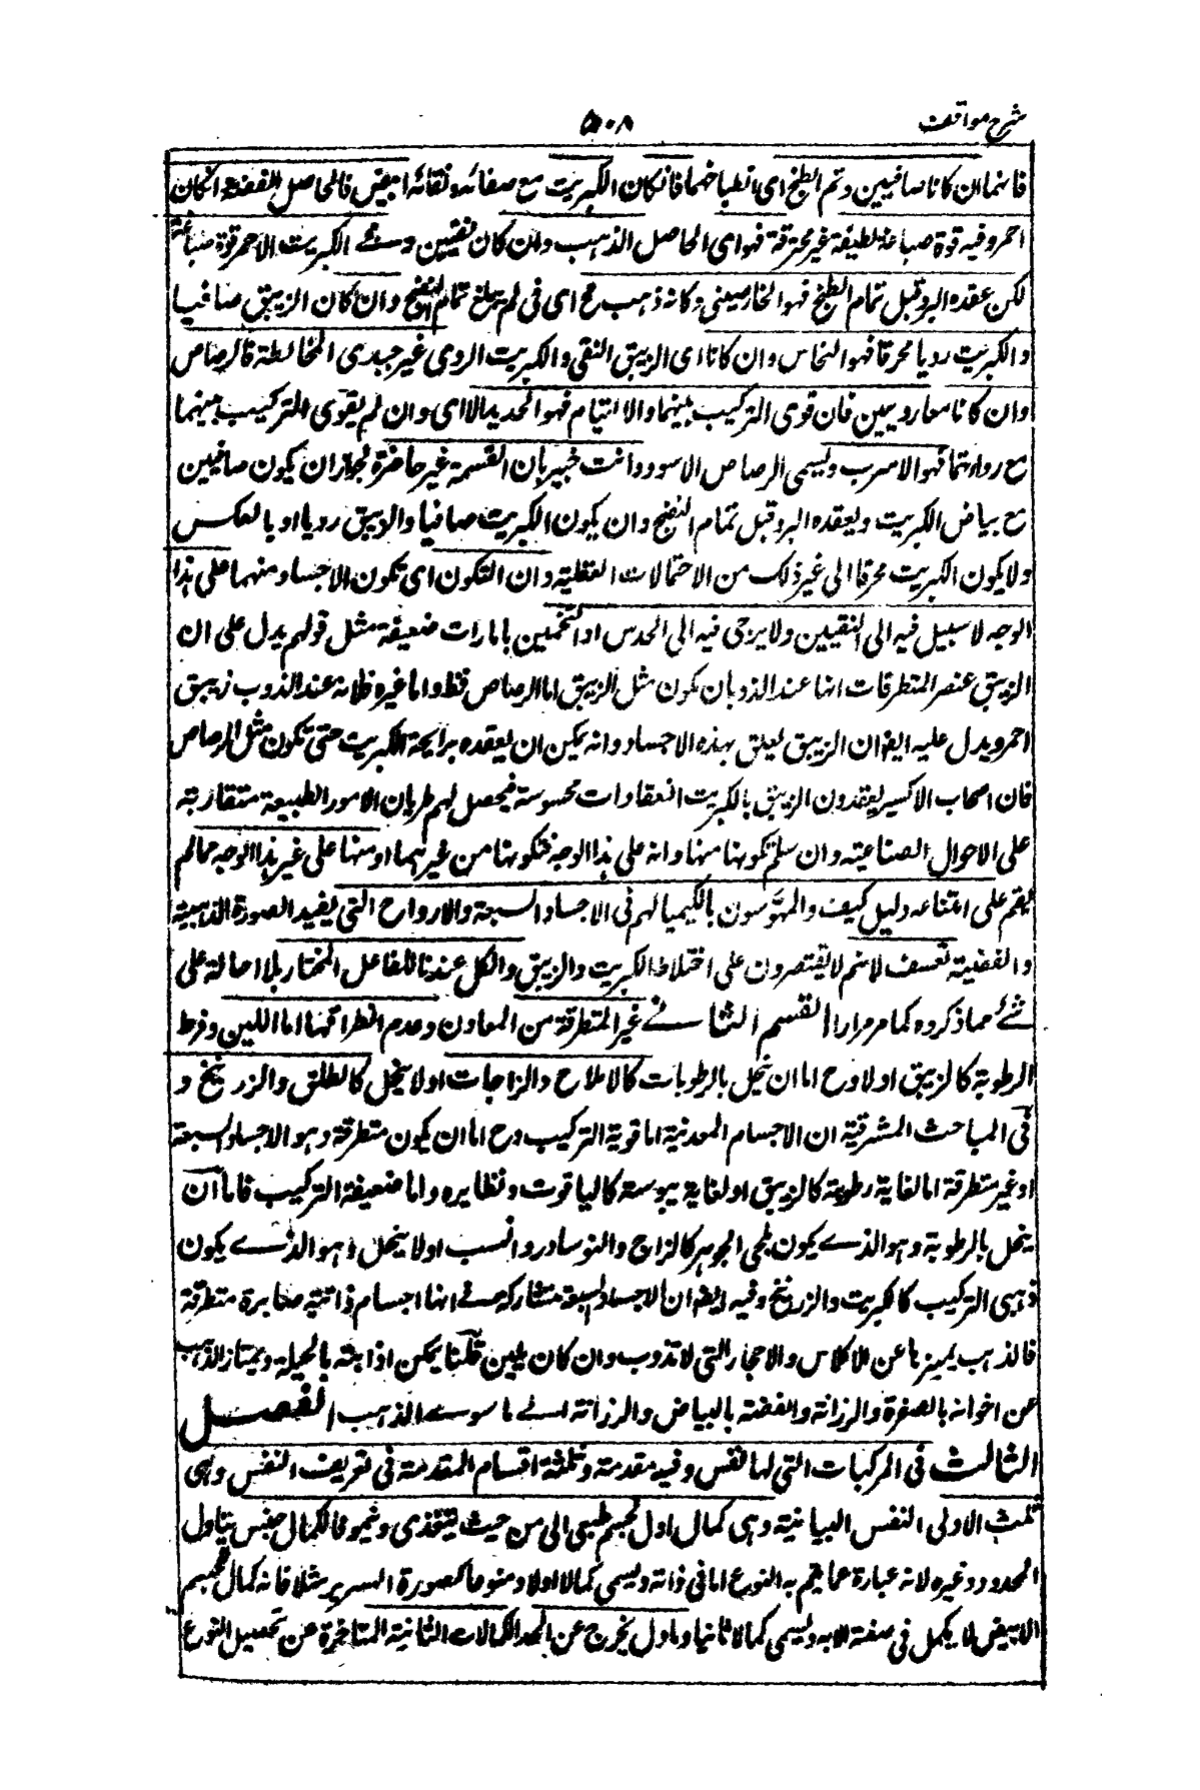 شرح مواقف
۵۰۸
فانهما ان كانا صافيين وتم الطبخ اى انطباخهما فانكان الكبريت مع صفائه ونقائه ابيض فالحاصل الفضة وانكان
احمر وفيه قوة صباغة لطيفة غير محرقة فهو اى الحاصل الذهب وان كان نقيين وفي الكبريت الاحمر قوة صباغة
لكن عقده البرد قبل تمام الطبخ فهو الخارصينى وكانه ذهب فج اى نى لم يبلغ تمام النضج وان كان الزيبق صافيا
والكبريت رديا محرقا فهو النحاس وان كانا اى الزيبق النقى والكبريت الردى غير جيدى المخالطة فالرصاص
وان كانا معا رديين فان قوى التركيب بينهما والالتيام فهو الحديد والا اى وان لم يقوى التركيب بينهما
مع رداءتهما فهو الاسرب ويسمى الرصاص الاسود وانت خبير بان القسمة غير حاضرة لجواز ان يكون صافيين
مع بياض الكبريت ويعقده البرد قبل تمام النضج وان يكون الكبريت صافيا والزيبق رديا او بالعكس
ولا يكون الكبريت محرقا الى غير ذلك من الاحتمالات العقلية وان التكون اى تكون الاجساد منهما على هذا
الوجه لا سبيل فيه الى اليقين ولا يرجى فيه الى الحدس او التخمين بامارات ضعيفة مثل قولهم يدل على ان
الزيبق عنصر المتطرقات انها عند الذوبان تكون مثل الزيبق اما الرصاص فظ واما غيره فلانه عند الذوب زيبق
احمر ويدل عليه ايضا ان الزيبق يعلق بهذه الاجساد وانه يمكن ان يعقده برايحة الكبريت حتى تكون مثل الرصاص
فان اصحاب الاكسير يعقدون الزيبق بالكبريت انعقادات محسوسة فيحصل لهم ظن بان الامور الطبيعة متقاربة
على الاحوال الصناعية وان سلم تكونها منها وانه على هذا الوجه فتكونها من غيرهما او منها على غير هذا الوجه مما لم
يقم على امتناعه دليل كيف والمهوسون بالكيميا لهم فى الاجساد السبعة والارواح التى يفيد الصورة الذهبية
والفضية تعسف لانهم لا يقتصرون على اختلاط الكبريت والزيبق والكل عندنا للفاعل المختار بلا احالة على
شئ مما ذكروه كما مر مرارا القسم الثانى غير المتطرقة من المعادن وعدم انطراقها اما اللين وفرط
الرطوبة كالزيبق اولا وح اما ان ينحل بالرطوبات كالاملاح والزاجات اولا ينحل كالطلق والزرنيخ و
فى المباحث المشرقية ان الاجسام المعدنية اما قوية التركيب وح اما ان يكون متطرقة وهو الاجساد السبعة
او غير متطرقة اما لغاية رطوبة كالزيبق او لغاية يبوسة كالياقوت ونظايره واما ضعيفة التركيب فاما ان
ينحل بالرطوبة وهو الذى يكون ملحى الجوهر كالزاج والنوسادر والشب اولا ينحل وهو الذى يكون
دهنى التركيب كالكبريت والزرنيخ وفيه ايضا ان الاجساد السبعة متشاركة فى انها اجسام ذائبة صابرة متطرقة
فالذهب يميزها عن الاكلاس والاحجار التى لا تذوب وان كان يلين قلنا يمكن اذابته بالحيلة ويمتاز الذهب
عن اخوانه بالصفرة والرزانة والفضة بالبياض والرزانة الى ما سوى الذهب الفصل
الثالث فى المركبات التى لها نفس وفيه مقدمة وثلثة اقسام المقدمة فى تعريف النفس وهى
ثلث الاولى النفس النباتية وهى كمال اول لجسم طبيعى الى من حيث يتغذى وينمو فالكمال جنس يتناول
المحدود وغيره لانه عبارة عما يتم به النوع اما فى ذاته ويسمى كمالا اولا ومنوعا كصورة السرير مثلا فانه كمال لجسم
الابيض لا يكمل فى صفته الا به ويسمى كمالا ثانيا واول يخرج عن الحد الكمالات الثانية المتاخرة عن تحصيل النوع